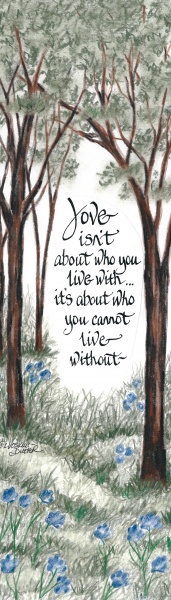 Love
isn't
about who you
live with...
it's about who
you cannot
live
without